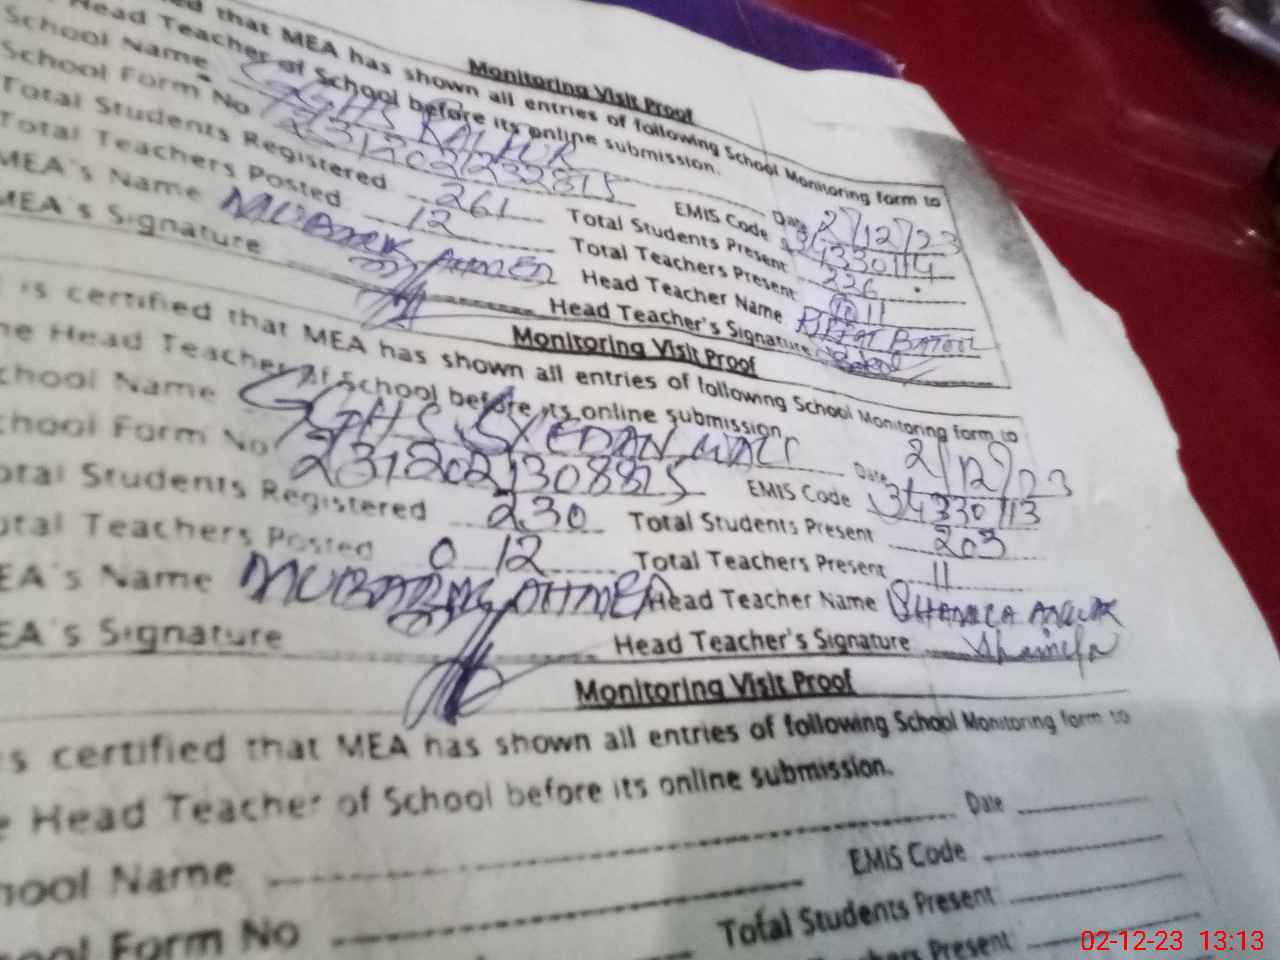 Monitoring Visit Proof
ed that MEA has shown all entries of following School Monitoring form to
Head Teacher of School before its online submission.
School Name GGHS Date 2/12/23
School Form No EMIS Code 34330114
Total Students Registered 261 Total Students Present 226
Total Teachers Posted 12 Total Teachers Present 11
MEA's Name MUBARIK AHMED Head Teacher Name RIFFAT BATOOL
MEA's Signature Head Teacher's Signature
Monitoring Visit Proof
is certified that MEA has shown all entries of following School Monitoring form to
he Head Teacher of School before its online submission
chool Name GGHS SYEDAN WALI Date 2/12/23
chool Form No EMIS Code 34330113
otal Students Registered 230 Total Students Present 203
otal Teachers Posted 0 12 Total Teachers Present 11
EA's Name MUBARIK AHMED Head Teacher Name
EA's Signature Head Teacher's Signature
Monitoring Visit Proof
s certified that MEA has shown all entries of following School Monitoring form to
e Head Teacher of School before its online submission.
hool Name Date
EMIS Code
ool Form No Total Students Present
hers Present
02-12-23 13:13